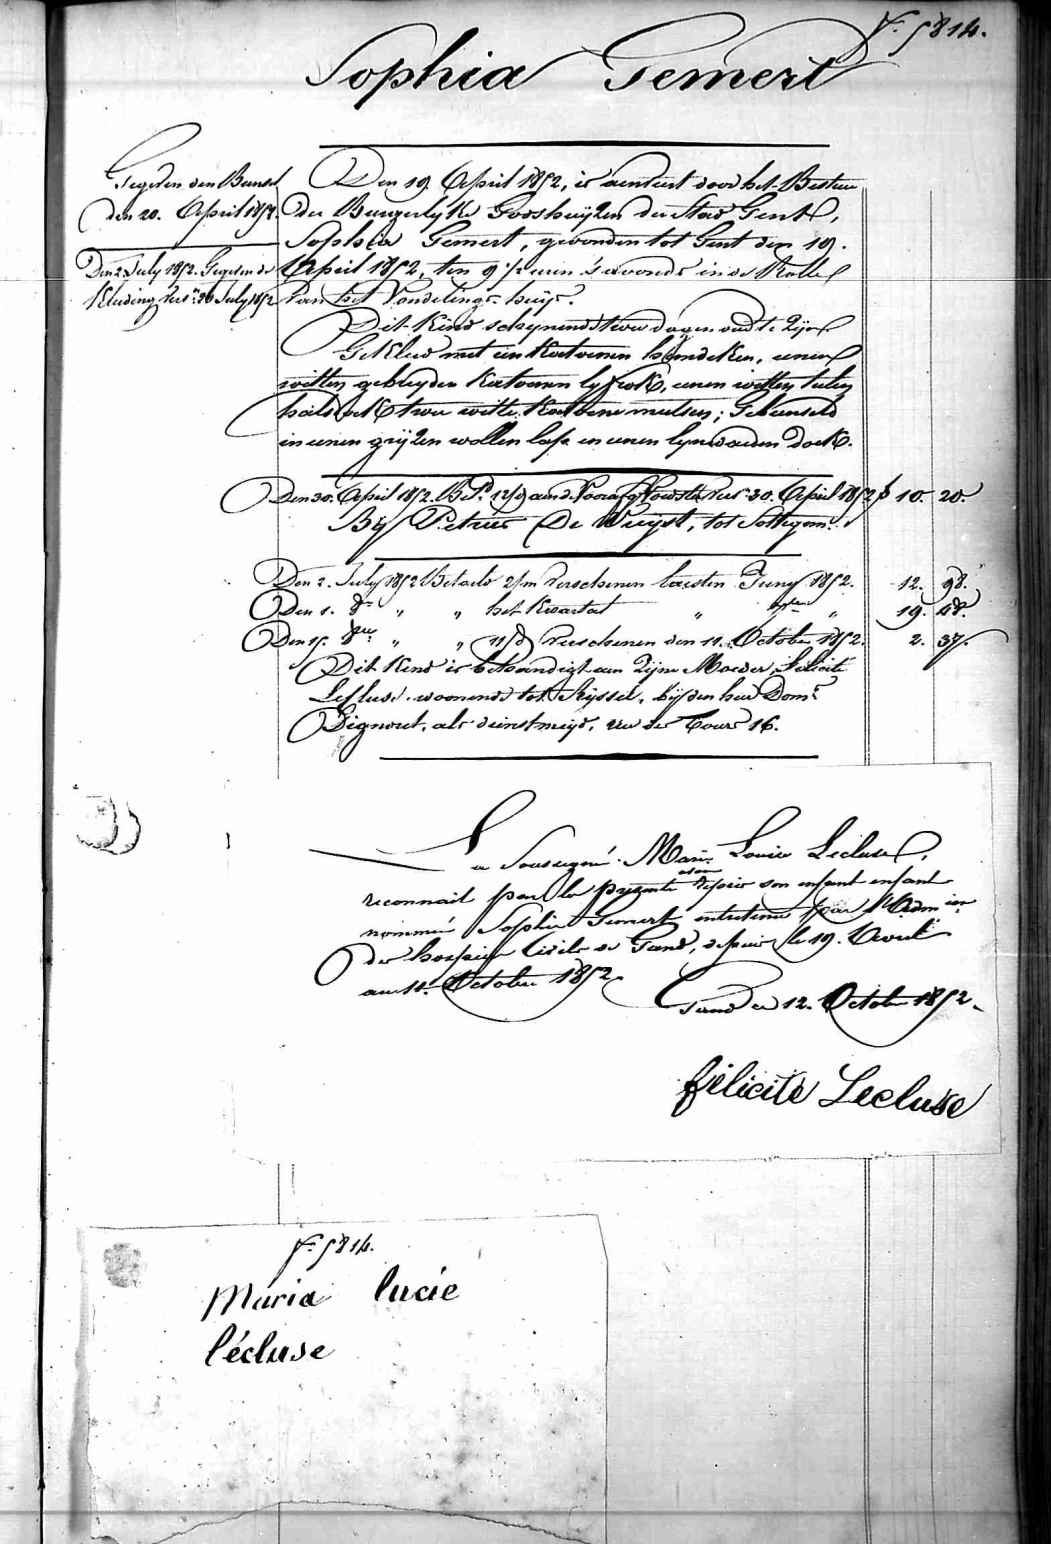 F. 5814.
Sophia Gemert
Gegeven den Bunsel
den 20. April 1852.
Den 2. July 1852. Gegeven de
Kleeding vers. 30 July 1852
Den 19 April 1852, is aenveert door het Bestuer
der Burgerlyke Godshuyzen der Stad Gent,
Sophia Gemert, gevonden tot Gent den 19.
April 1852, ten 9 ½ uren 's avonds in de Rolle
van het Vondelings-huys.
Dit Kind schynende twee dagen oud te zyn
Gekleed met een Katoenen hemdeken, eenen
witten gebreyden Katoenen lyfrok, eenen witten tulen
halsdoek, twee witte Katoene mutsen; Gebunseld
in eenen gryzen wollen lap en eenen lynwaeden doek.
Den 30. April 1852. Bet.d 12/d aan d. Voorzorg Voedster vers. 30. April 1852 f 10. 20.
By Petrus De Wuyst, tot Sottegem.
Den 2. July 1852 Betaeld 2/m verschenen laesten Juny 1852. 12. 98.
Den 1. 8.re " " het Kwartael " 7ber " 19. 48.
Den 15. 8bre " " 11/d verschenen den 11. October 1852. 2. 37.
Dit Kind is behandigt aen zyne Moeder, Felicité
Lecluse woonende tot Ryssel, by den heer Dom.e
Dignout, als dienstmeyd, rue de Tours 16.
La Soussigné Marie Louise Lecluse,
reconnait par la présente avoir repris son enfant enfant
nommé Sophie Gemert entretenu par l'Adm ion
des hospices Civils de Gand, depuis le 19. Avril
au 11. Octobre 1852
Gand ce 12. Octobre 1852.
félicité Lecluse
F. 5814.
Maria lucie
lécluse